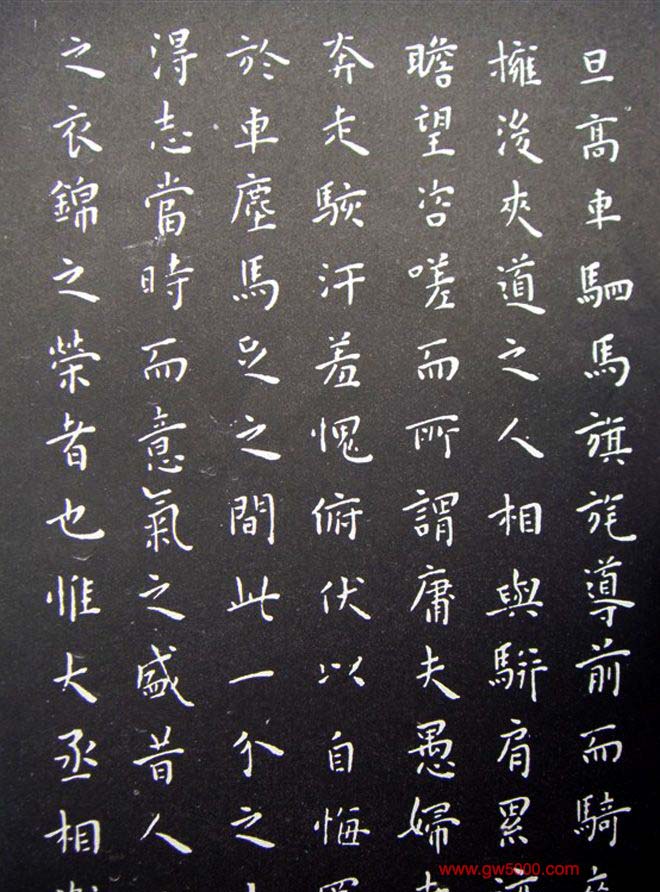 旦高車駟馬旗旄導前而騎
擁後夾道之人相與駢肩累
瞻望咨嗟而所謂庸夫愚婦
奔走駭汗羞愧俯伏以自悔
於車塵馬足之間此一介之
得志當時而意氣之盛昔人
之衣錦之榮者也惟大丞相
www.gw5000.com